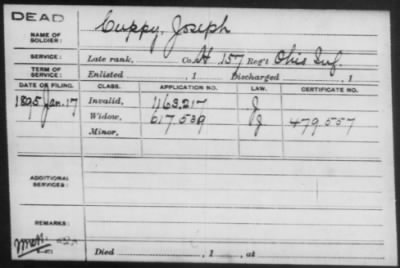 DEAD
NAME OF SOLDIER: Cuppy, Joseph
SERVICE: Late rank, Co. H, 157 Reg't Ohio Inf.
TERM OF SERVICE: Enlisted , 1 Discharged , 1
DATE OF FILING. CLASS. APPLICATION NO. LAW. CERTIFICATE NO.
1895 Jan. 17 Invalid, 1163.217 J
Widow, 617.539 J 479.557
Minor,
ADDITIONAL SERVICES:
REMARKS:
Died , 1 , at